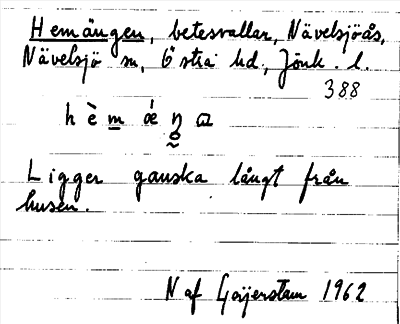 Hemängen, betesvallar, Nävelsjöås,
Nävelsjö sn, Östra hd, Jönk. l.
388
Ligger ganska långt från
husen.
N af Geijerstam 1962